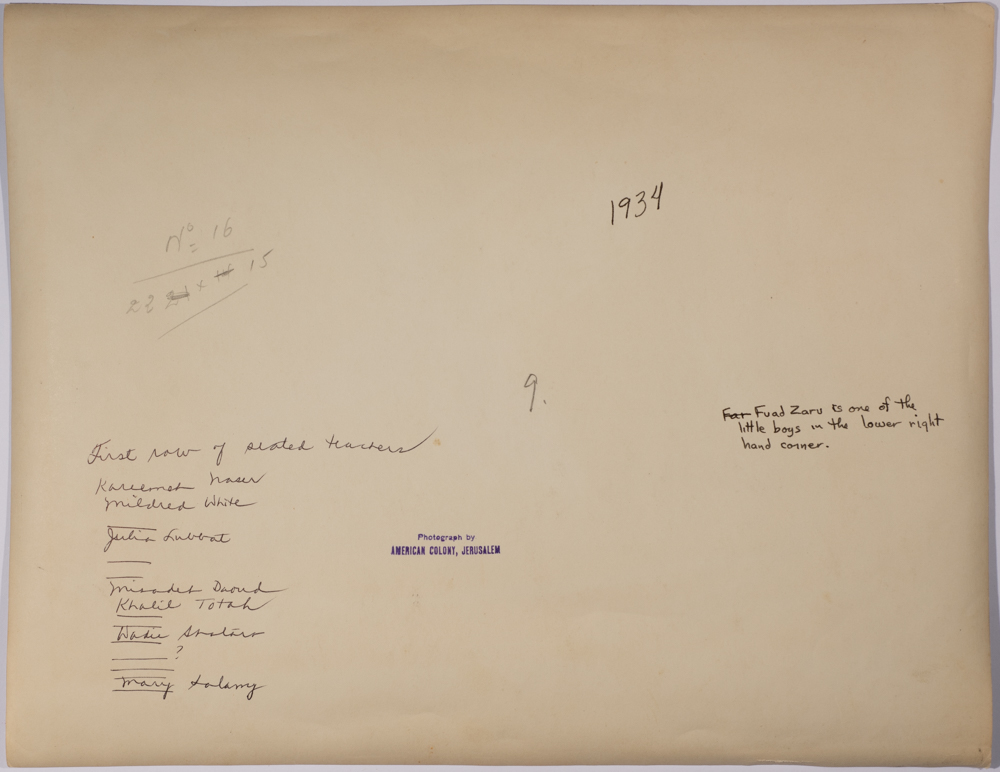 1934
Nº 16
23 21 x 15
9.
Fuad Zaru is one of the
little boys in the lower right
hand corner.
First row of seated teachers
Kareemeh Naser
Mildred White
Julia
Daoud
Khalil Totah
Wadie
?
Mary Salamy
Photograph by
AMERICAN COLONY, JERUSALEM